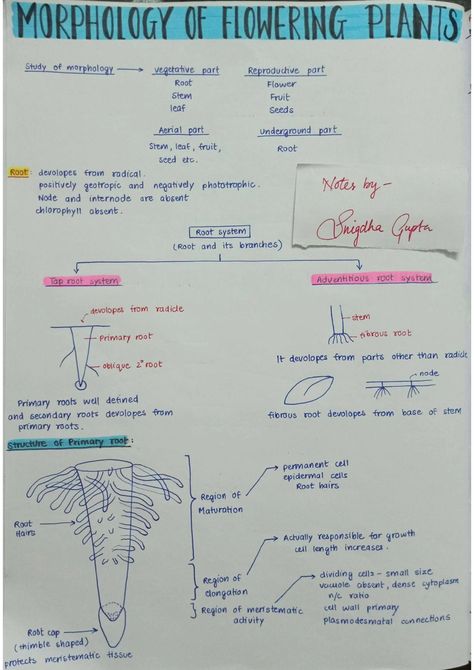 MORPHOLOGY OF FLOWERING PLANTS
Study of morphology
vegetative part
Root
Stem
leaf
Reproductive part
Flower
Fruit
Seeds
Aerial part
Stem, leaf, fruit,
seed etc.
underground part
Root
Root: devolopes from radical.
positively geotropic and negatively phototrophic.
Node and internode are absent
chlorophyll absent.
Notes by -
Snigdha Gupta
Root system
(Root and its branches)
Tap root system
devolopes from radicle
primary root
oblique 2° root
Primary roots well defined
and secondary roots devolopes from
primary roots.
Adventitious root system
stem
fibrous root
It devolopes from parts other than radicle
node
fibrous root devolopes from base of stem
Structure of Primary root:
Root
Hairs
Root cap
(thimble shaped)
protects meristematic tissue
Region of
Maturation
permanent cell
epidermal cells
Root hairs
Region of
elongation
Actually responsible for growth
cell length increases.
Region of meristematic
activity
dividing cells - small size
vacuole absent, dense cytoplasm
n/c ratio
cell wall primary
plasmodesmatal connections